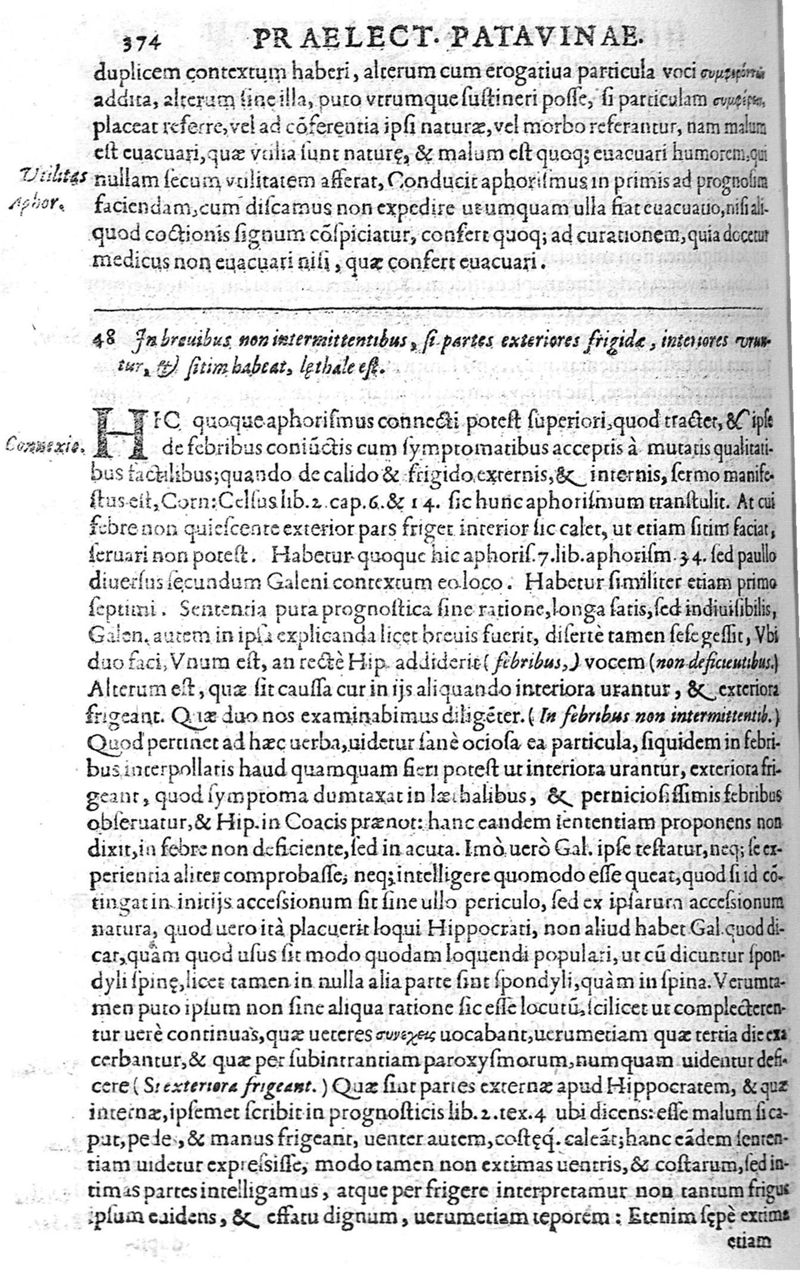 374 PRAELECT. PATAVINAE.
duplicem contextum haberi, alterum cum erogatiua particula voci
addita, alterum sine illa, puto vtrumque sustineri posse, si particulam
placeat referre, vel ad cōferentia ipsi naturæ, vel morbo referantur, nam malum
est euacuari, quæ vtilia sunt naturę, & malum est quoq; euacuari humorem, qui
Vtilitas nullam secum vtilitatem afferat, Conducit aphorismus in primis ad prognosim
Aphor. faciendam, cum discamus non expedire ut umquam ulla fiat euacuatio, nisi ali-
quod coctionis signum cōspiciatur, confert quoq; ad curationem, quia docetur
medicus non euacuari nisi, quæ confert euacuari.
48 In breuibus non intermittentibus, si partes exteriores frigidæ, interiores vrun-
tur, & sitim habeat, lęthale est.
HIC quoque aphorismus connecti potest superiori, quod tractet, & ipse
Connexio. de febribus coniūctis cum symptomatibus acceptis à mutatis qualitati-
bus tactilibus; quando de calido & frigido externis, & internis, sermo manife-
stus est, Corn: Celsus lib. 2. cap. 6. & 14. sic hunc aphorismum transtulit. At cui
febre non quiescente exterior pars friget interior sic calet, ut etiam sitim faciat,
seruari non potest. Habetur quoque hic aphoris. 7. lib. aphorism. 34. sed paullo
diuersus secundum Galeni contextum eo loco. Habetur similiter etiam primo
septimi. Sententia pura prognostica sine ratione, longa satis, sed indiuisibilis,
Galen. autem in ipsa explicanda licet breuis fuerit, disertè tamen sese gessit, Vbi
duo faci, Vnum est, an rectè Hip. addiderit (febribus,) vocem (non deficientibus.)
Alterum est, quæ sit caussa cur in ijs aliquando interiora urantur, & exteriora
frigeant. Quæ duo nos examinabimus diligēter. (In febribus non intermittentib.)
Quod pertinet ad hæc uerba, uidetur sanè ociosa ea particula, siquidem in febri-
bus interpollatis haud quamquam fieri potest ut interiora urantur, exteriora fri-
geant, quod symptoma dumtaxat in læthalibus, & perniciosissimis febribus
obseruatur, & Hip. in Coacis prænot: hanc eandem sententiam proponens non
dixit, in febre non deficiente, sed in acuta. Imò uerò Gal. ipse testatur, neq; se ex-
perientia aliter comprobasse, neq; intelligere quomodo esse queat, quod si id cō-
tingat in initijs accessionum sit sine ullo periculo, sed ex ipsarum accessionum
natura, quod uero ità placuerit loqui Hippocrati, non aliud habet Gal. quod di-
cat, quàm quod usus sit modo quodam loquendi populari, ut cū dicuntur spon-
dyli spinę, licet tamen in nulla alia parte sint spondyli, quàm in spina. Verumta-
men puto ipsum non sine aliqua ratione sic esse locutū, scilicet ut complecteren-
tur uerè continuas, quæ ueteres συνεχεις uocabant, uerumetiam quæ tertia die exa
cerbantur, & quæ per subintrantiam paroxysmorum, numquam uidentur defi-
cere (Si exteriora frigeant.) Quæ sint partes externæ apud Hippocratem, & quæ
internæ, ipsemet scribit in prognosticis lib. 2. tex. 4 ubi dicens: esse malum si ca-
put, pedes, & manus frigeant, uenter autem, costęq. caleāt; hanc eādem senten-
tiam uidetur expressisse, modo tamen non extimas uentris, & costarum, sed in-
timas partes intelligamus, atque per frigere interpretamur non tantum frigus
ipsum euidens, & effatu dignum, uerumetiam teporem: Etenim sępè extima
etiam